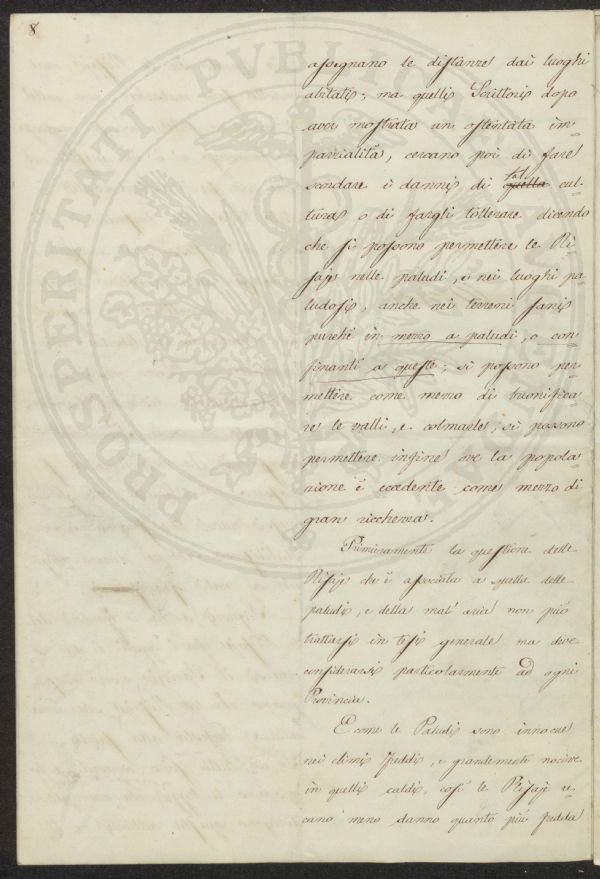 8
PROSPERITATI PVBLICAE
assegnano le distanze dai luoghi
abitati; ma quelli Scrittori dopo
aver mostrata un ostentata im-
parzialità, cercano poi di fare
scordare i danni, di tal quella cul-
tura o di fargli tollerare dicendo
che si possono permettere le Ri-
saje nelle paludi, e nei luoghi pa-
ludosi, anche nei terreni sani
purchè in mezzo a paludi, o con-
finanti a queste; si possono per-
mettere come mezzo di buonifica-
re le valli, e colmarle; si possono
permettere infine ove la popola-
zione è eccedente come mezzo di
gran ricchezza.
Primieramente la questione delle
Risaje che è associata a quella delle
paludi, e della mal' aria non può
trattarsi in tesi generale ma deve
considerarsi particolarmente ad ogni
Provincia.
E come le Paludi sono innocue
nei climi freddi, e grandemente nocive
in quelli caldi, così le Risaje re-
cano meno danno quanto più fredda